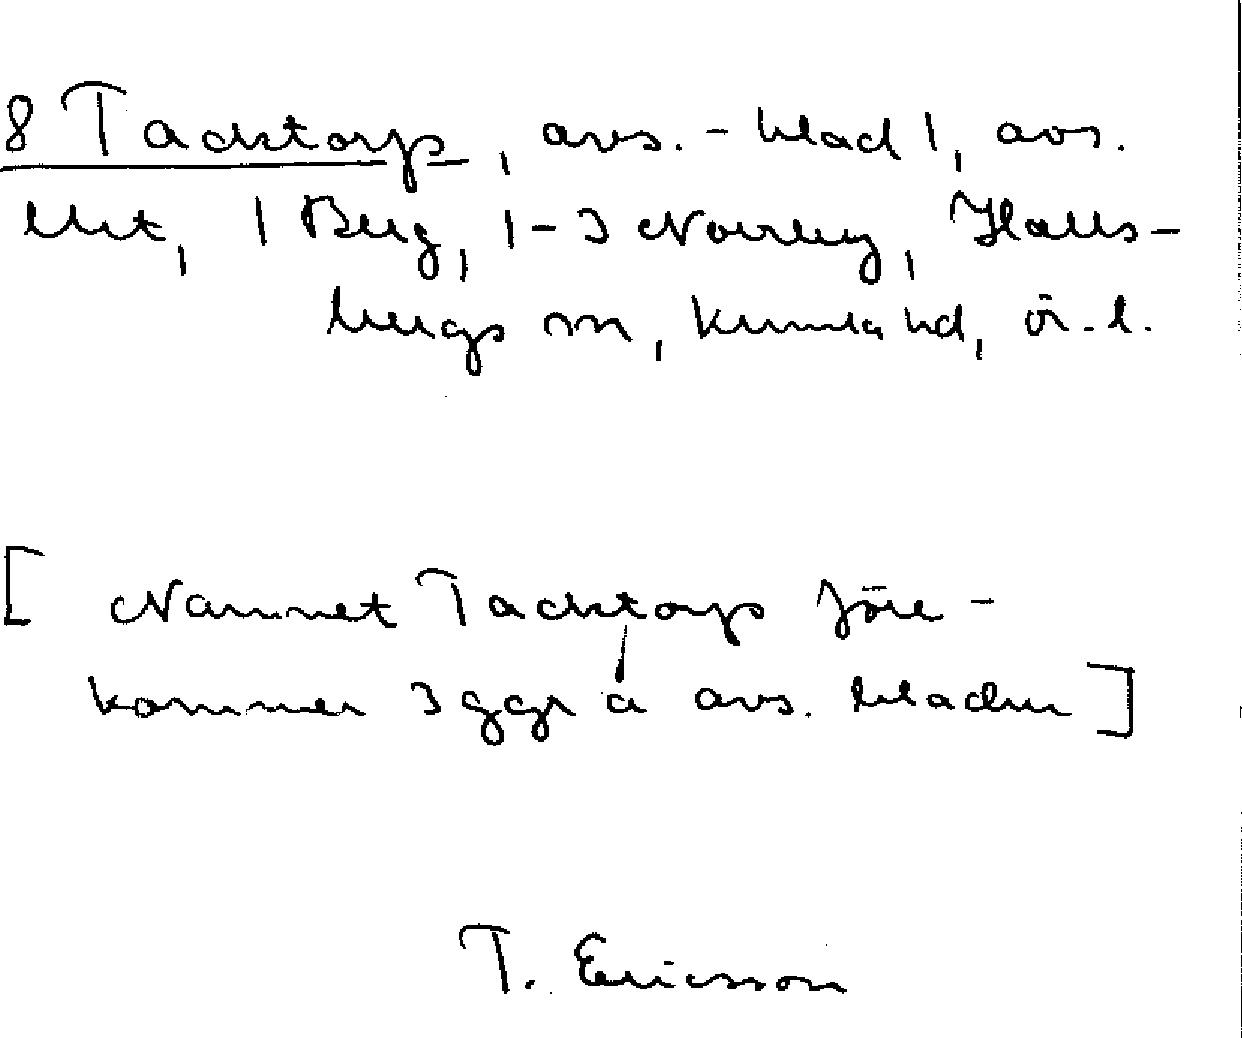 8 Tacktorp, avs.-blad 1, avs.
litt, 1 Berg, 1-3 Norrby, Halls-
bergs sn, Kumla hd, ör. l.
[ Namnet Tacktorp före-
kommer 3 ggr å avs. bladen ]
T. Ericsson